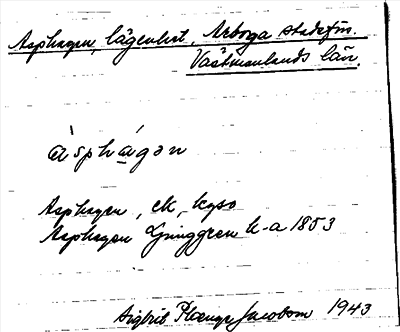 Asphagen, lägenhet, Arboga stadsfm.
Västmanlands län.
a´sph`agən
Asphagen, ek, kyso
Asphagen Ljunggren h-a 1853
Sigbrit Plænge Jacobson 1943